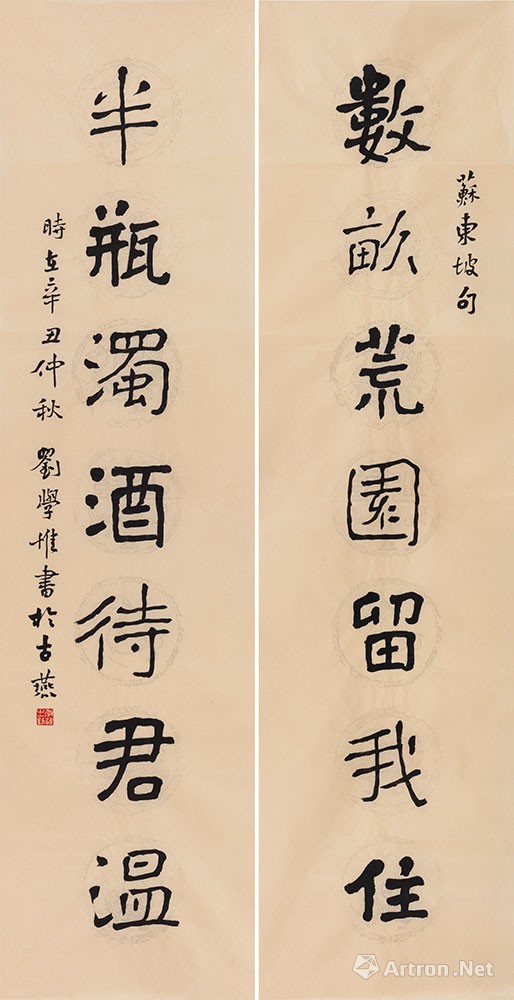 蘇東坡句
數畝荒園留我住
半瓶濁酒待君溫
時在辛丑仲秋 劉學惟書於古燕
Artron.Net